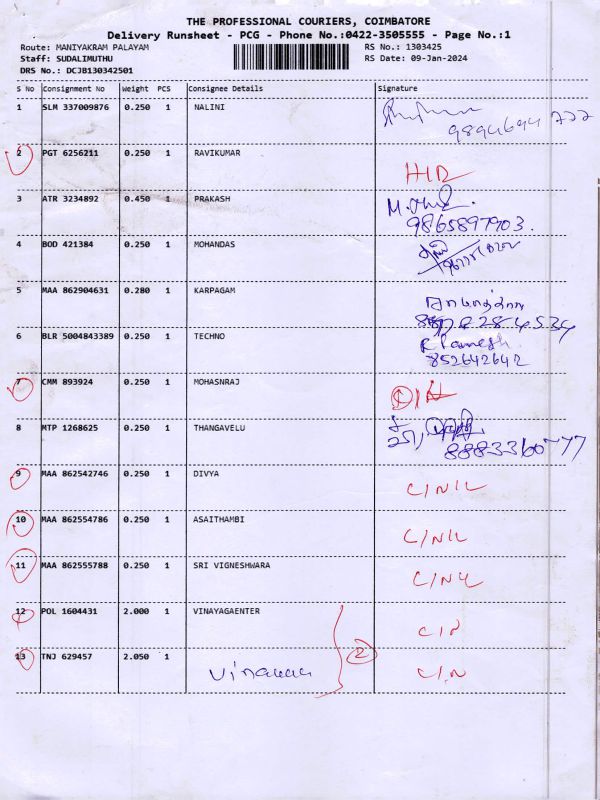 THE PROFESSIONAL COURIERS, COIMBATORE
Delivery Runsheet - PCG - Phone No.:0422-3505555 - Page No.:1
Route: MANIYAKRAM PALAYAM
RS No.: 1303425
Staff: SUDALIMUTHU
RS Date: 09-Jan-2024
DRS No.: DCJB130342501
S No Consignment No Weight PCS Consignee Details Signature
1 SLM 337009876 0.250 1 NALINI
2 PGT 6256211 0.250 1 RAVIKUMAR
3 ATR 3234892 0.450 1 PRAKASH
9865897903.
4 BOD 421384 0.250 1 MOHANDAS
5 MAA 862904631 0.280 1 KARPAGAM
6 BLR 5004843389 0.250 1 TECHNO
852642642
7 CMM 893924 0.250 1 MOHASNRAJ
8 MTP 1268625 0.250 1 THANGAVELU
9 MAA 862542746 0.250 1 DIVYA
C/NIL
10 MAA 862554786 0.250 1 ASAITHAMBI
C/NIL
11 MAA 862555788 0.250 1 SRI VIGNESHWARA
C/NIL
12 POL 1604431 2.000 1 VINAYAGAENTER
C/N
2
13 TNJ 629457 2.050 1
C/N